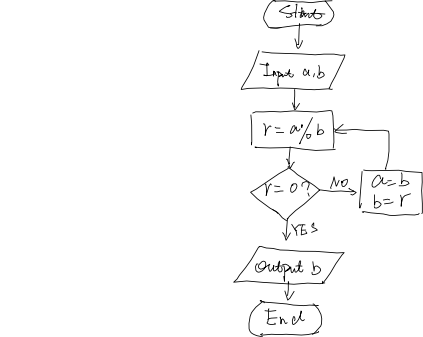 Start
Input a,b
r = a % b
r = 0 ?
NO
a = b
b = r
YES
Output b
End